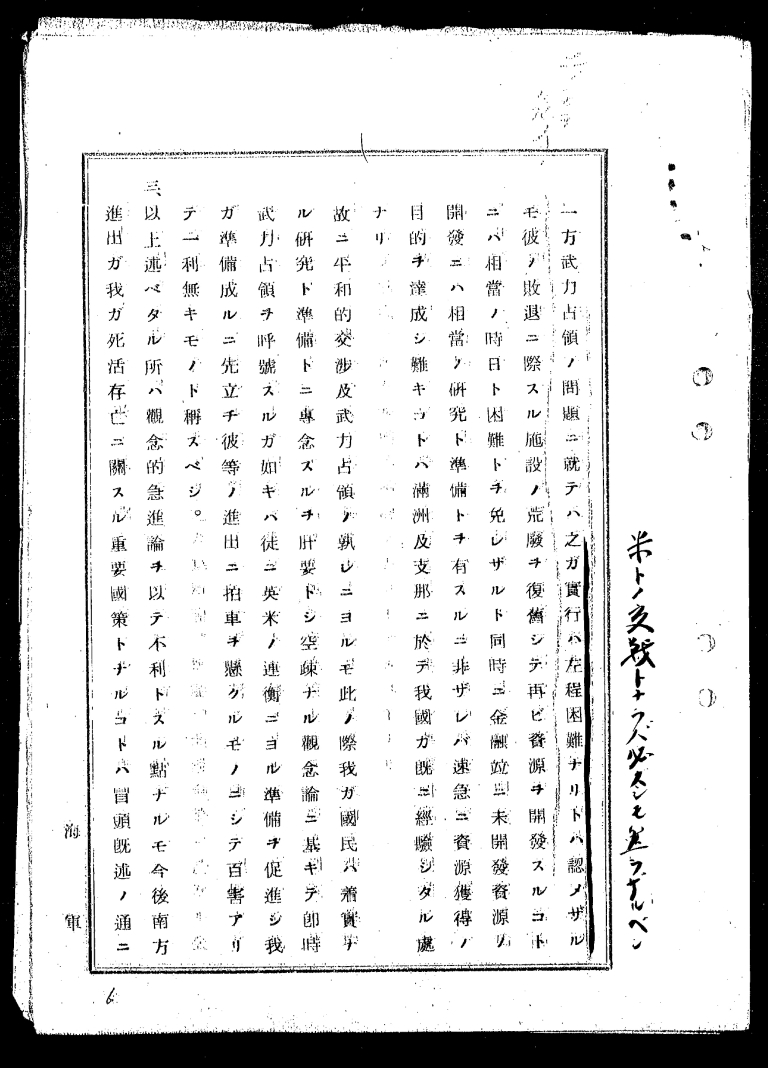 米トノ交戰トナラバ必スシモ然ラザルベシ
一方武力占領ノ問題ニ就テハ之ガ實行ハ左程困難ナリトハ認メザル
モ彼ノ敗退ニ際スル施設ノ荒廢ヲ復舊シテ再ビ資源ヲ開發スルコト
ニハ相當ノ時日ト困難トヲ免レザルト同時ニ金融竝ニ未開發資源ノ
開發ニハ相當ノ研究ト準備トヲ有スルニ非ザレバ速急ニ資源獲得ノ
目的ヲ達成シ難キコトハ滿洲及支那ニ於テ我國ガ既ニ經驗シタル處
ナリ
故ニ平和的交渉及武力占領ノ孰レニヨルモ此ノ際我ガ國民ハ着實ナ
ル研究ト準備トニ專念スルヲ肝要トシ空疎ナル觀念論ニ基キテ卽時
武力占領ヲ呼號スルガ如キハ徒ニ英米ノ連衡ニヨル準備ヲ促進シ我
ガ準備成ルニ先立チ彼等ノ進出ニ拍車ヲ懸クルモノニシテ百害アリ
テ一利無キモノト稱スベシ。
三、以上述ベタル所ハ觀念的急進論ヲ以テ不利トスル點ナルモ今後南方
進出ガ我ガ死活存亡ニ關スル重要國策トナルコトハ冒頭既述ノ通ニ
海軍
6